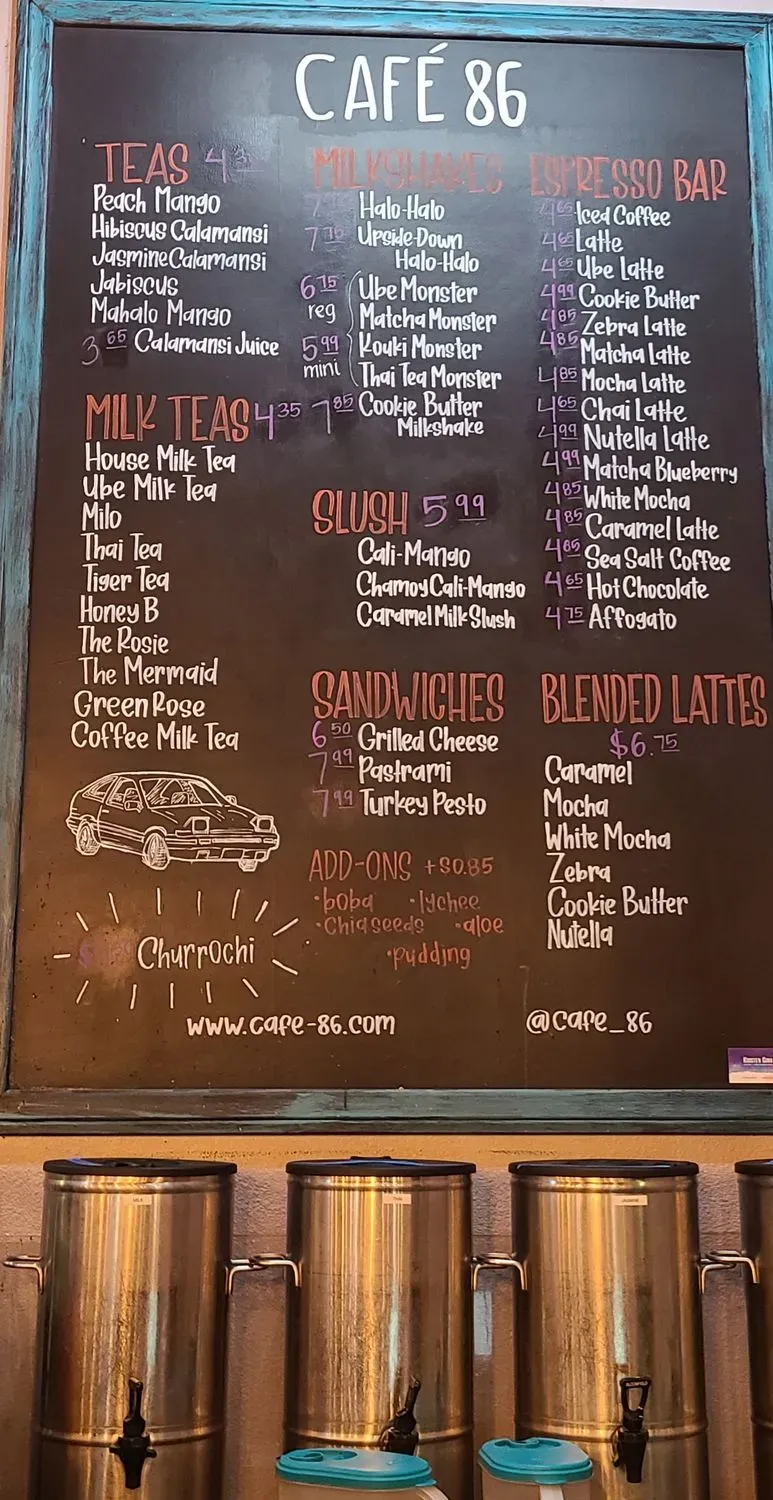 CAFÉ 86
TEAS
Peach Mango
Hibiscus Calamansi
Jasmine Calamansi
Jabiscus
Mahalo Mango
3 65 Calamansi Juice
MILK TEAS 4 35
House Milk Tea
Ube Milk Tea
Milo
Thai Tea
Tiger Tea
Honey B
The Rosie
The Mermaid
Green Rose
Coffee Milk Tea
Churrochi
MILKSHAKES
Halo-Halo
Upside-Down
Halo-Halo
6 75 reg
5 99 mini
Ube Monster
Matcha Monster
Kouki Monster
Thai Tea Monster
7 85 Cookie Butter
Milkshake
SLUSH 5 99
Cali-Mango
Chamoy Cali-Mango
Caramel Milk Slush
SANDWICHES
6 50 Grilled Cheese
7 99 Pastrami
7 99 Turkey Pesto
ADD-ONS +$0.85
•boba •lychee
•Chia seeds •aloe
•pudding
ESPRESSO BAR
4 65 Iced Coffee
4 65 Latte
4 65 Ube Latte
4 99 Cookie Butter
4 85 Zebra Latte
4 85 Matcha Latte
4 85 Mocha Latte
4 65 Chai Latte
4 99 Nutella Latte
4 99 Matcha Blueberry
4 85 White Mocha
4 85 Caramel Latte
Sea Salt Coffee
4 65 Hot Chocolate
4 75 Affogato
BLENDED LATTES
$6.75
Caramel
Mocha
White Mocha
Zebra
Cookie Butter
Nutella
www.cafe-86.com
@cafe_86